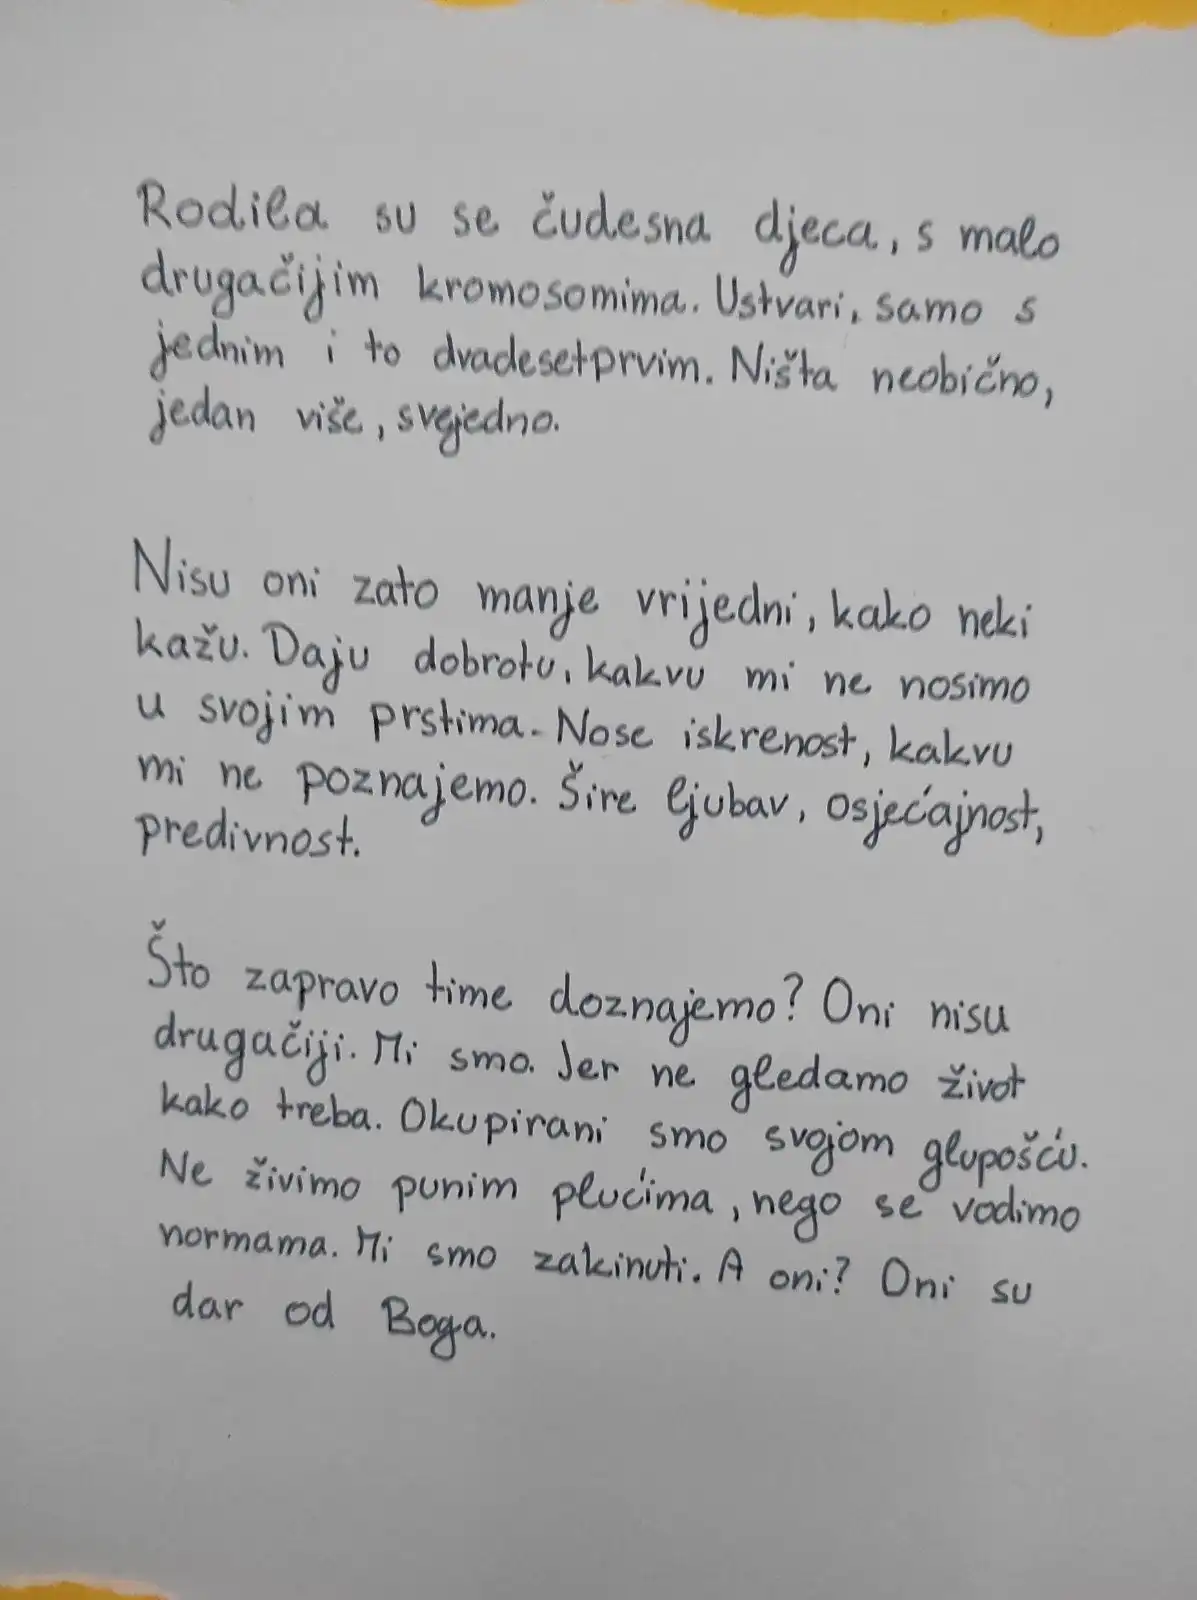 Rodila su se čudesna djeca, s malo
drugačijim kromosomima. Ustvari, samo s
jednim i to dvadesetprvim. Ništa neobično,
jedan više, svejedno.
Nisu oni zato manje vrijedni, kako neki
kažu. Daju dobrotu, kakvu mi ne nosimo
u svojim prstima. Nose iskrenost, kakvu
mi ne poznajemo. Šire ljubav, osjećajnost,
predivnost.
Što zapravo time doznajemo? Oni nisu
drugačiji. Mi smo. Jer ne gledamo život
kako treba. Okupirani smo svojom glupošću.
Ne živimo punim plućima, nego se vodimo
normama. Mi smo zakinuti. A oni? Oni su
dar od Boga.